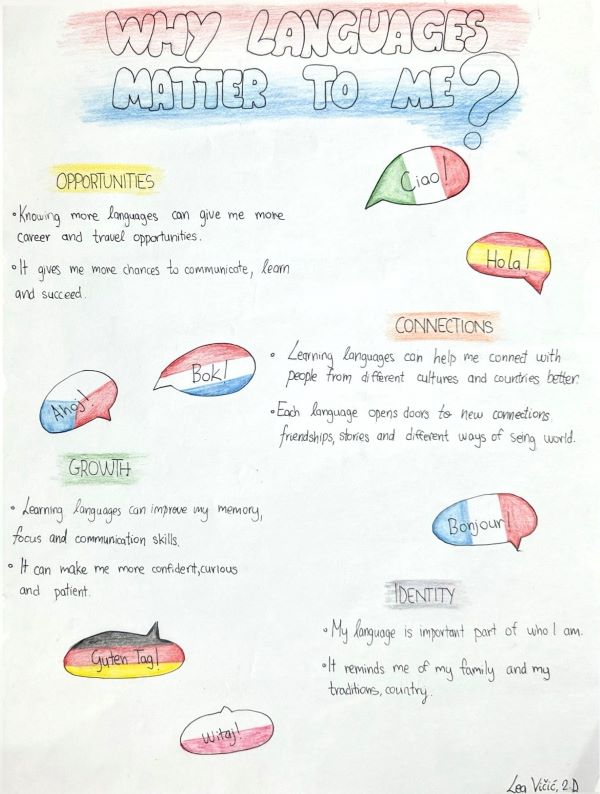 WHY LANGUAGES
MATTER TO ME?
Ciao!
OPPORTUNITIES
•Knowing more languages can give me more
career and travel opportunities.
•It gives me more chances to communicate, learn
and succeed.
Hola!
CONNECTIONS
• Learning languages can help me connect with
people from different cultures and countries better.
•Each language opens doors to new connections,
friendships, stories and different ways of seing world.
Bok!
Ahoj!
GROWTH
• Learning languages can improve my memory,
focus and communication skills.
• It can make me more confident, curious
and patient.
Bonjour!
IDENTITY
• My language is important part of who I am.
•It reminds me of my family and my
traditions, country.
Guten Tag!
Witaj!
Lea Vičić, 2.D